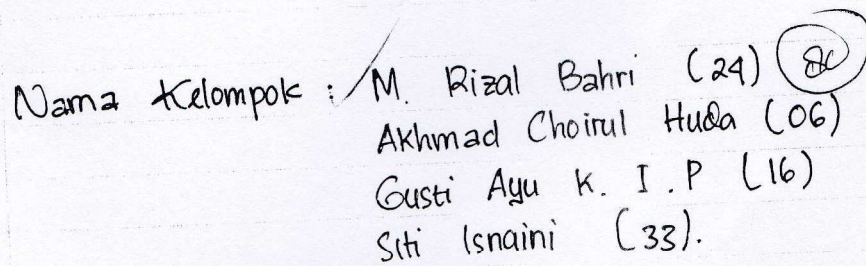 Nama Kelompok : M. Rizal Bahri (24)
Akhmad Choirul Huda (06)
Gusti Ayu K. I. P (16)
Siti Isnaini (33).